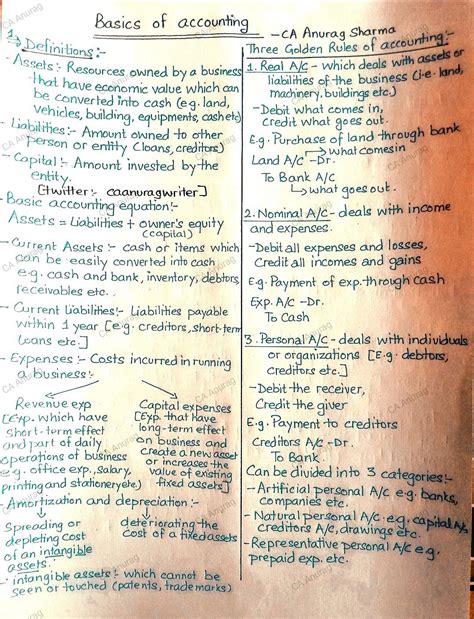 Basics of accounting
- CA Anurag Sharma
1. Definitions:-
- Assets:- Resources owned by a business
that have economic value which can
be converted into cash (e.g. land,
vehicles, building, equipments, cash etc)
- Liabilities:- Amount owned to other
person or entity (loans, creditors)
- Capital:- Amount invested by the
entity.
[twitter:- caanuragwriter]
- Basic accounting equation:-
Assets = Liabilities + owner's equity
(capital)
- Current Assets:- cash or items which
can be easily converted into cash
e.g. cash and bank, inventory, debtors,
receivables etc.
- Current Liabilities:- Liabilities payable
within 1 year [e.g. creditors, short-term
loans etc.]
- Expenses:- Costs incurred in running
a business:-
Revenue exp
[Exp. which have
short-term effect
and part of daily
operations of business
e.g. office exp., salary,
printing and stationery etc.]
Capital expenses
[Exp. that have
long-term effect
on business and
create a new asset
or increases the
value of existing
fixed assets]
- Amortization and depreciation:-
Spreading or
depleting cost
of an intangible
assets.
deteriorating the
cost of a fixed assets
- intangible assets:- which cannot be
seen or touched (patents, trademarks)
Three Golden Rules of accounting:-
1. Real A/c - which deals with assets or
liabilities of the business (i.e. land,
machinery, buildings etc.)
- Debit what comes in,
Credit what goes out.
E.g. Purchase of land through bank
Land A/c - Dr. what comes in
To Bank A/c
what goes out.
2. Nominal A/c - deals with income
and expenses.
- Debit all expenses and losses,
Credit all incomes and gains
E.g. Payment of exp. through cash
Exp. A/c - Dr.
To Cash
3. Personal A/c - deals with individuals
or organizations [E.g. debtors,
creditors etc.]
- Debit the receiver,
Credit the giver
E.g. Payment to creditors
Creditors A/c - Dr.
To Bank
Can be divided into 3 categories:-
- Artificial personal A/c e.g. banks,
companies etc.
- Natural personal A/c e.g. capital A/c,
creditors A/c, drawings etc.
- Representative personal A/c e.g.
prepaid exp. etc.
CA Anurag